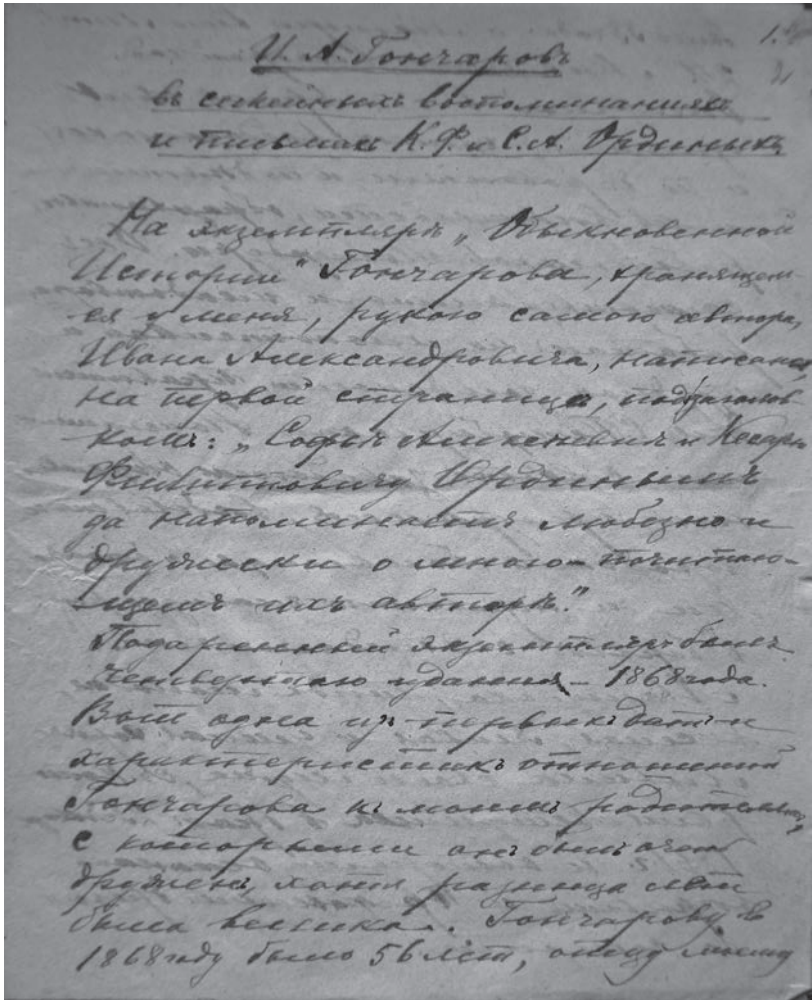 1.
И. А. Гончаровъ
въ семейныхъ воспоминаніяхъ
и письмахъ К. Ф. и С. А. Ординыхъ
На экземплярѣ „Обыкновенной
Исторіи" Гончарова, хранящем-
ся у меня, рукою самого автора,
Ивана Александровича, написано
на первой страницѣ, подъ заголов-
комъ: „Софьѣ Алексѣевнѣ и Кесарю
Филипповичу Ординымъ
да напоминаетъ любезно и
дружески о много-почитаю-
щемъ ихъ авторѣ."
Подаренный экземпляръ былъ
четвертаго изданія – 1868 года.
Вотъ одна изъ первыхъ датъ и
характеристикъ отношеній
Гончарова къ моимъ родителямъ,
с которыми онъ былъ очень
друженъ, хотя разница лѣтъ
была велика. Гончарову в
1868 году было 56 лѣтъ, отцу моему